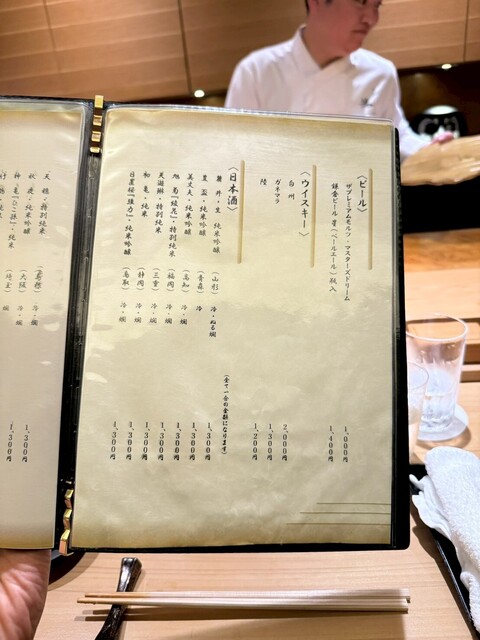 〈ビール〉
ザプレミアムモルツ・マスターズドリーム 1,000円
鎌倉ビール 星(ペールエール)瓶入 1,400円
〈ウイスキー〉
白州 2,000円
ガキラ 1,300円
陸 1,200円
〈日本酒〉
(全て一合の金額になります)
麓井・生 純米吟醸 (山形) 冷・ぬる燗 1,300円
豊盃・純米吟醸 (青森) 冷 1,300円
美丈夫・純米吟醸 (高知) 冷・燗 1,300円
旭菊『綾花』特別純米 (福岡) 冷・燗 1,300円
天遊琳・特別純米 (三重) 冷・燗 1,300円
初亀・純米 (静岡) 冷・燗 1,300円
日置桜『強力』純米吟醸 (鳥取) 冷・燗 1,300円
天穏・特別純米 (島根) 冷・燗 1,300円
秋鹿・純米吟醸 (大阪) 冷・燗 1,300円
神亀『ひこ孫』・純米 (埼玉) 燗